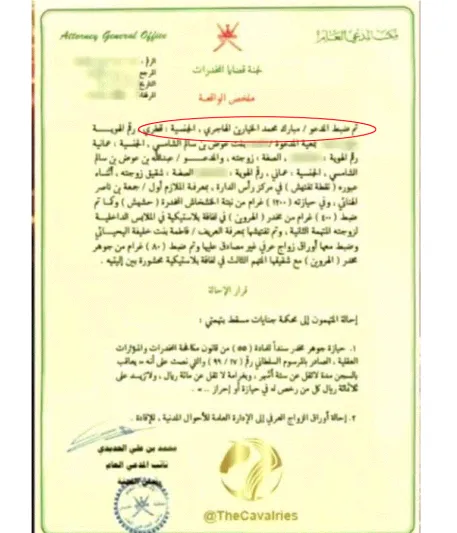 Attorney General Office
مكتب المدعي العام
لجنة قضايا المخدرات
الرقم :
المرجع :
التاريخ :
المرفقات :
ملخص الواقعة
تم ضبط المدعو / مبارك محمد الخيارين الهاجري ، الجنسية : قطري ، رقم الهوية
بمعية المدعوة / بنت عوض بن سالم الشامسي ، الجنسية : عمانية
رقم الهوية : الصفة : زوجته ، والمدعو / عبدالله بن عوض بن سالم
الشامسي ، الجنسية : عماني ، رقم الهوية : الصفة : شقيق زوجته ، أثناء
عبوره ( نقطة تفتيش ) في مركز رأس الدارة ، بمعرفة الملازم أول / جمعة بن ناصر
الهنائي ، وفي حيازته ( ١٢٠٠ ) غرام من نبتة الخشخاش المخدرة ( حشيش ) وكما تم
ضبط ( ٤٠٠ ) غرام من مخدر ( الهروين ) في لفافة بلاستيكية في الملابس الداخلية
لزوجته المتهمة الثانية ، وتم تفتيشها بمعرفة العريف / فاطمة بنت خليفة اليحيائي
وضبط معها أوراق زواج عرفي غير مصادق عليها وتم ضبط ( ٨٠ ) غرام من جوهر
مخدر ( الهروين ) مع شقيقها المتهم الثالث في لفافة بلاستيكية محشورة بين إليتيه .
قرار الإحالة
إحالة المتهمون إلى محكمة جنايات مسقط بتهمتي :
١. حيازة جوهر مخدر سندا للمادة ( ٥٥ ) من قانون مكافحة المخدرات والمؤثرات
العقلية ، الصادر بالمرسوم السلطاني رقم ( ١٧ / ٩٩ ) والتي نصت على أنه – يعاقب
بالسجن مدة لاتقل عن ستة أشهر ، وبغرامة لا تقل عن مائة ريال ، ولاتزيد على
ثلاثمائة ريال كل من رخص له في حيازة أو إحراز .. – .
٢. إحالة أوراق الزواج العرفي إلى الإدارة العامة للأحوال المدنية ، للإفادة .
محمد بن علي الحديدي
نائب المدعي العام
@TheCavalries